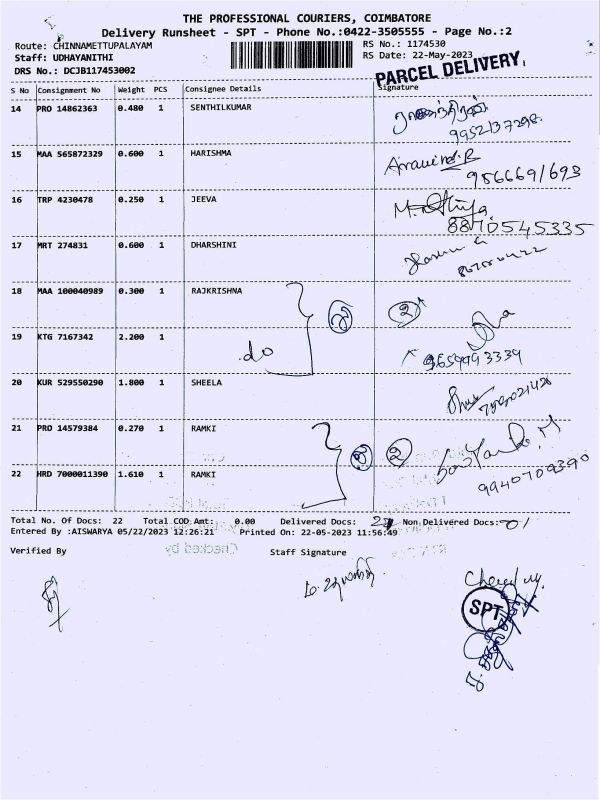 THE PROFESSIONAL COURIERS, COIMBATORE
Delivery Runsheet - SPT - Phone No.:0422-3505555 - Page No.:2
Route: CHINNAMETTUPALAYAM RS No.: 1174530
Staff: UDHAYANITHI RS Date: 22-May-2023
DRS No.: DCJB117453002 PARCEL DELIVERY
S No Consignment No Weight PCS Consignee Details Signature
14 PRO 14862363 0.480 1 SENTHILKUMAR
9952137298
15 MAA 565872329 0.600 1 HARISHMA Aravind.R
9566691693
16 TRP 4230478 0.250 1 JEEVA
8870545335
17 MRT 274831 0.600 1 DHARSHINI
18 MAA 100040989 0.300 1 RAJKRISHNA 2 2
19 KTG 7167342 2.200 1 do
9659493339
20 KUR 529550290 1.800 1 SHEELA
21 PRO 14579384 0.270 1 RAMKI 2 2
22 HRD 7000011390 1.610 1 RAMKI 9940709390
Total No. Of Docs: 22 Total COD Amt: 0.00 Delivered Docs: Non Delivered Docs: 01
Entered By :AISWARYA 05/22/2023 12:26:21 Printed On: 22-05-2023 11:56:49
Verified By Checked by Staff Signature
SPT